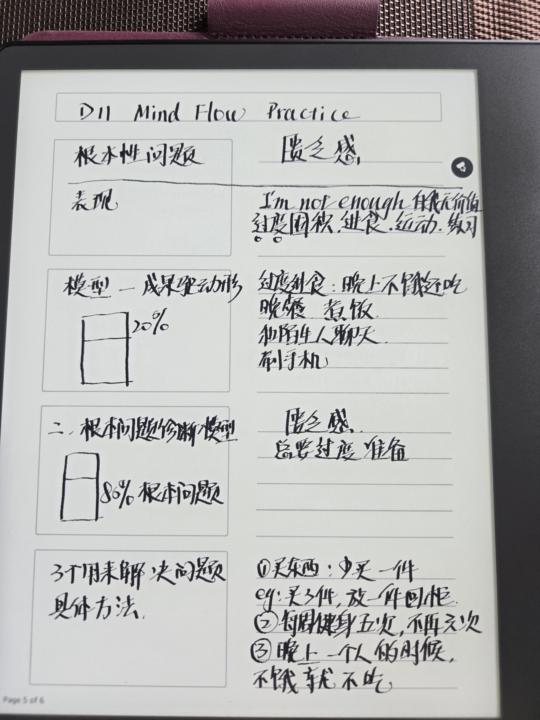 D11 Mind Flow Practice
根本性问题
匮乏感
表现
I'm not enough 自我无价值
过度囤积.进食.运动.练习
模型一成果驱动形
20%
过度进食:晚上不饿还吃
晚餐 煮饭
和陌生人聊天
刷手机
二.根本问题诊断模型
80%根本问题
匮乏感
总要过度准备
3个用来解决问题
具体方法.
①买东西:少买一件
eg:买3件,放一件回柜
②每周健身五次,不再六次
③晚上一个人的时候,
不饿就不吃
Page 5 of 6